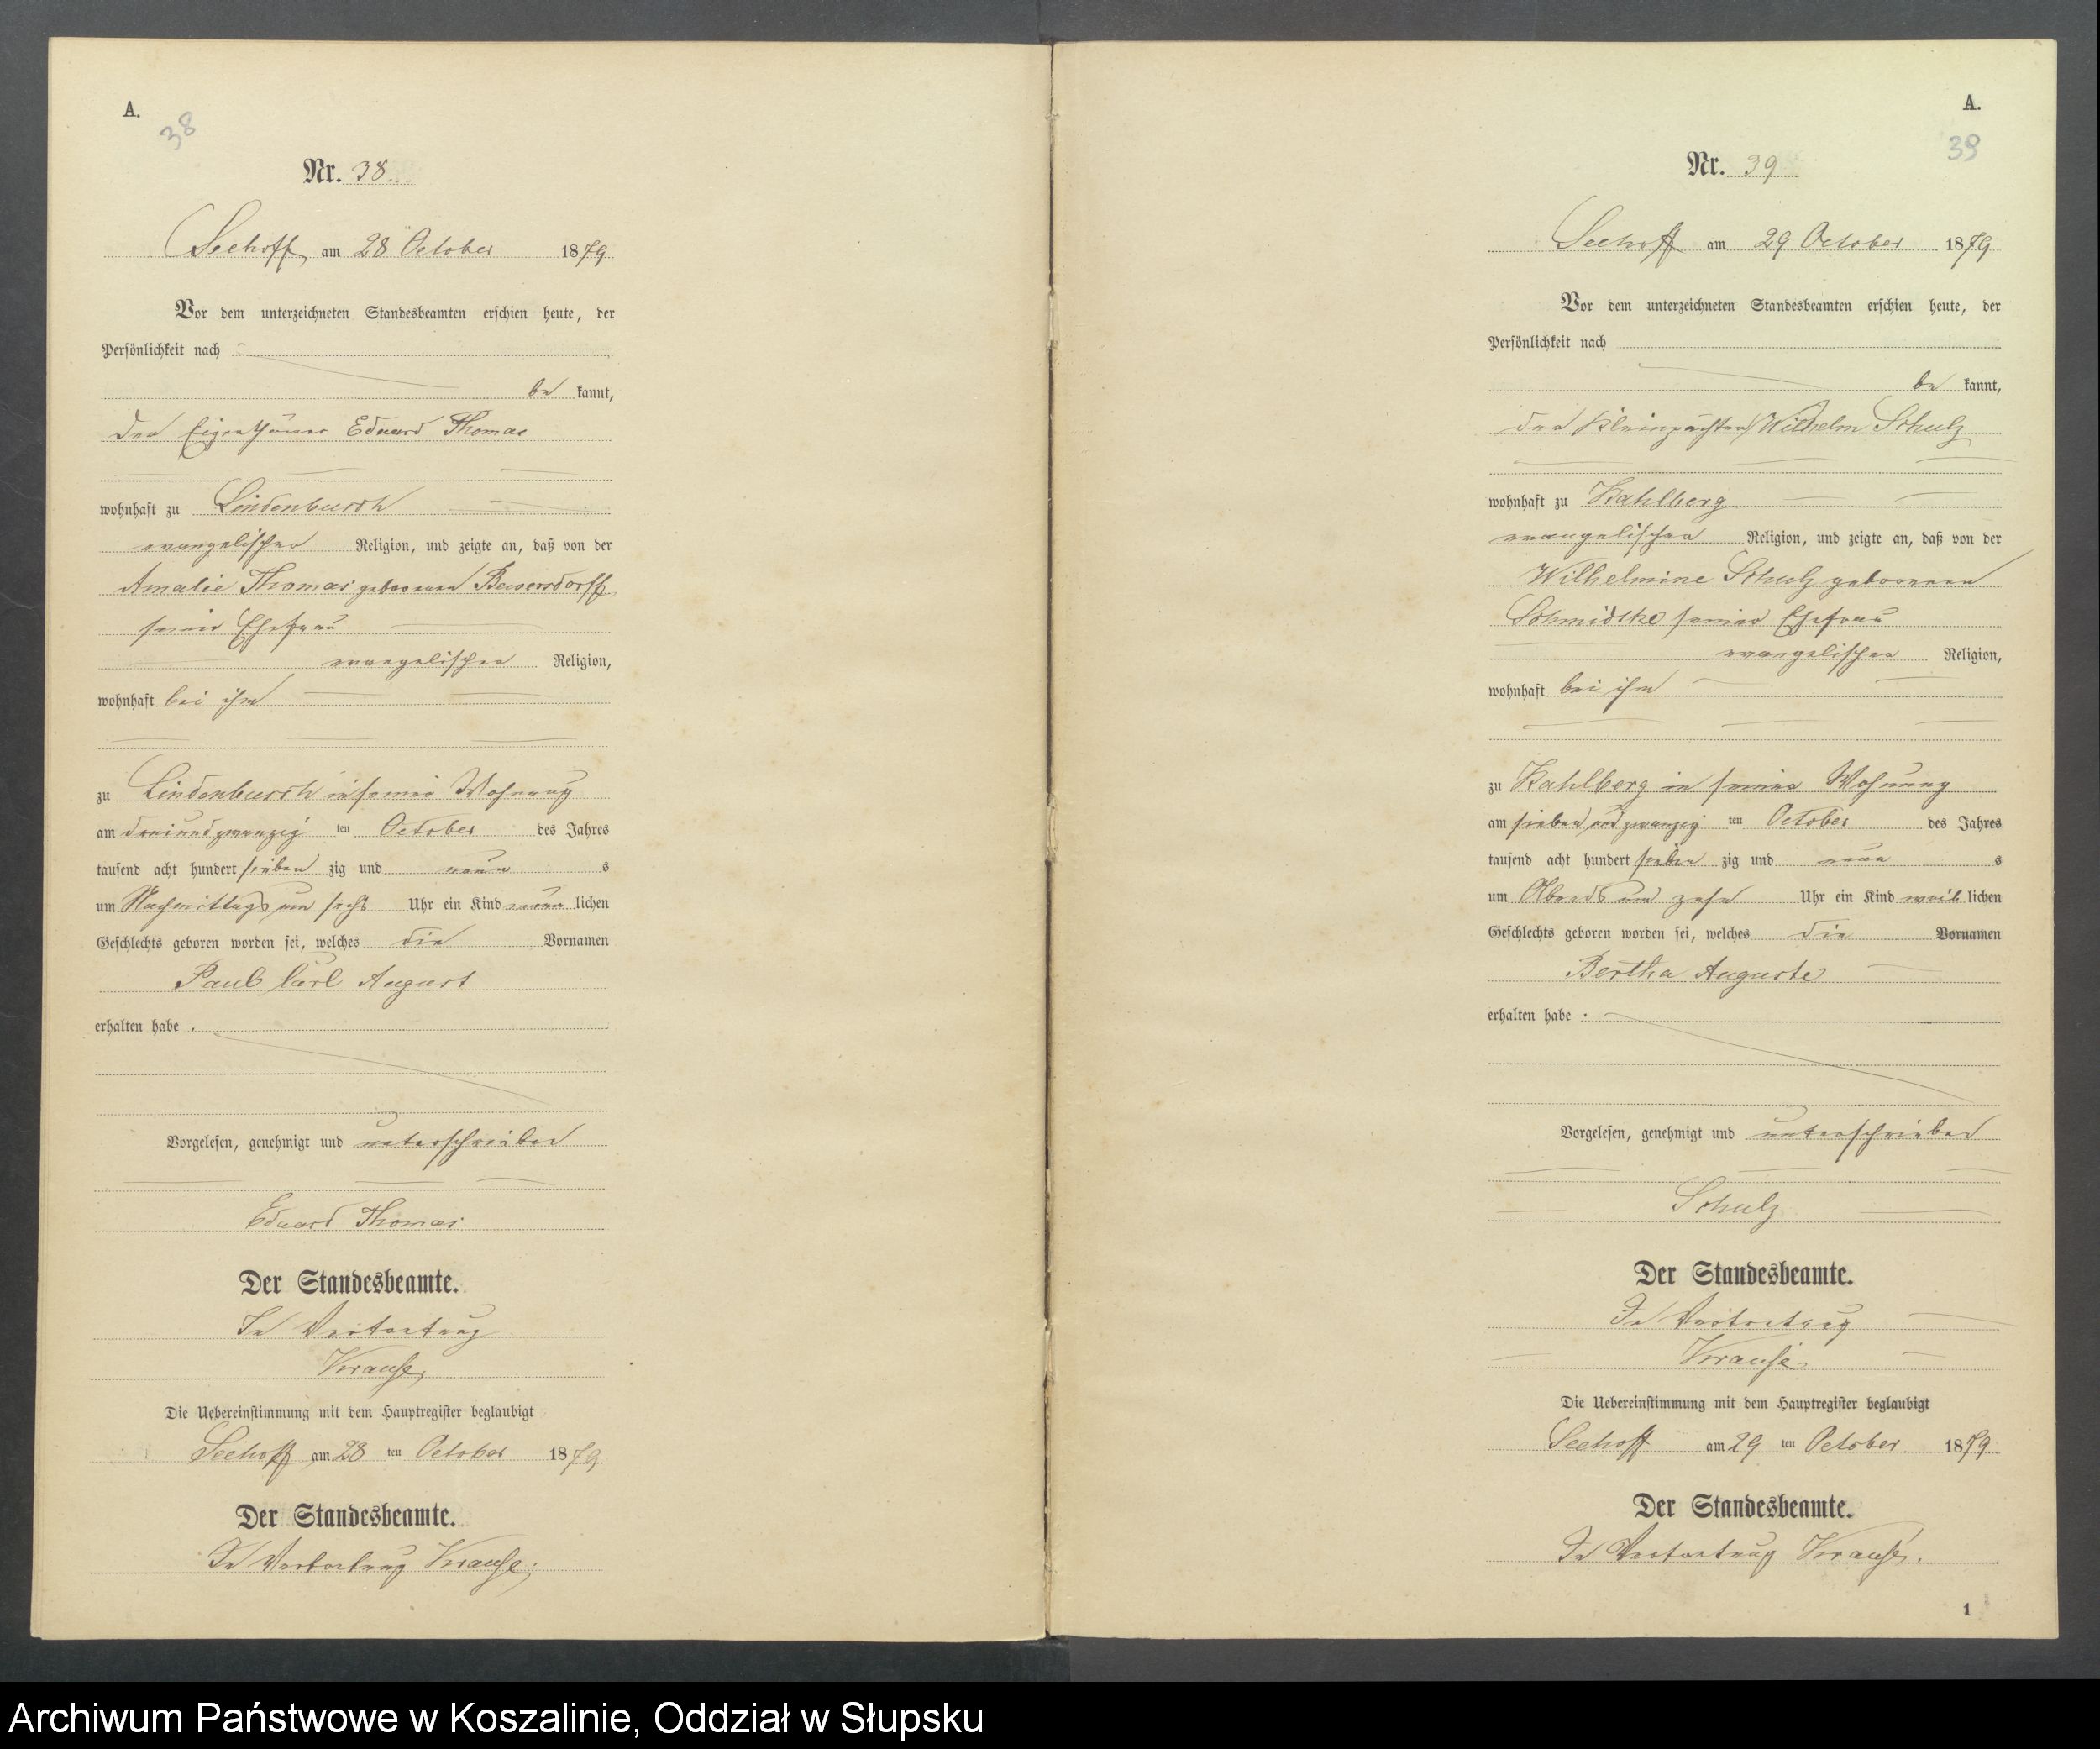 A.
38
Nr. 38.
Seehoff am 28 October 1879
Vor dem unterzeichneten Standesbeamten erschien heute, der
Persönlichkeit nach
be kannt,
der Eigenthümer Eduard Thomas
wohnhaft zu Lindenbusch
evangelischer Religion, und zeigte an, daß von der
Amalie Thomas geborenen Bewersdorff
seiner Ehefrau
evangelischer Religion,
wohnhaft bei ihm
zu Lindenbusch in seiner Wohnung
am dreiundzwanzig ten October des Jahres
tausend acht hundert sieben zig und neun s
um Nachmittags um sechs Uhr ein Kind männ lichen
Geschlechts geboren worden sei, welches die Vornamen
Paul Carl August
erhalten habe .
Vorgelesen, genehmigt und unterschrieben
Eduard Thomas
Der Standesbeamte.
In Vertretung
Krause
Die Uebereinstimmung mit dem Hauptregister beglaubigt
Seehoff am 28 ten October 1879
Der Standesbeamte.
In Vertretung Krause.
A.
39
Nr. 39
Seehoff am 29 October 1879
Vor dem unterzeichneten Standesbeamten erschien heute, der
Persönlichkeit nach
be kannt,
der Kleinpächter Wilhelm Schulz
wohnhaft zu Kahlberg
evangelischer Religion, und zeigte an, daß von der
Wilhelmine Schulz geborenen
Schmidtke seiner Ehefrau
evangelischer Religion,
wohnhaft bei ihm
zu Kahlberg in seiner Wohnung
am sieben und zwanzig ten October des Jahres
tausend acht hundert sieben zig und neun s
um Abends um zehn Uhr ein Kind weib lichen
Geschlechts geboren worden sei, welches die Vornamen
Bertha Auguste
erhalten habe .
Vorgelesen, genehmigt und unterschrieben
Schulz
Der Standesbeamte.
In Vertretung
Krause
Die Uebereinstimmung mit dem Hauptregister beglaubigt
Seehoff am 29 ten October 1879
Der Standesbeamte.
In Vertretung Krause.
1
Archiwum Państwowe w Koszalinie, Oddział w Słupsku